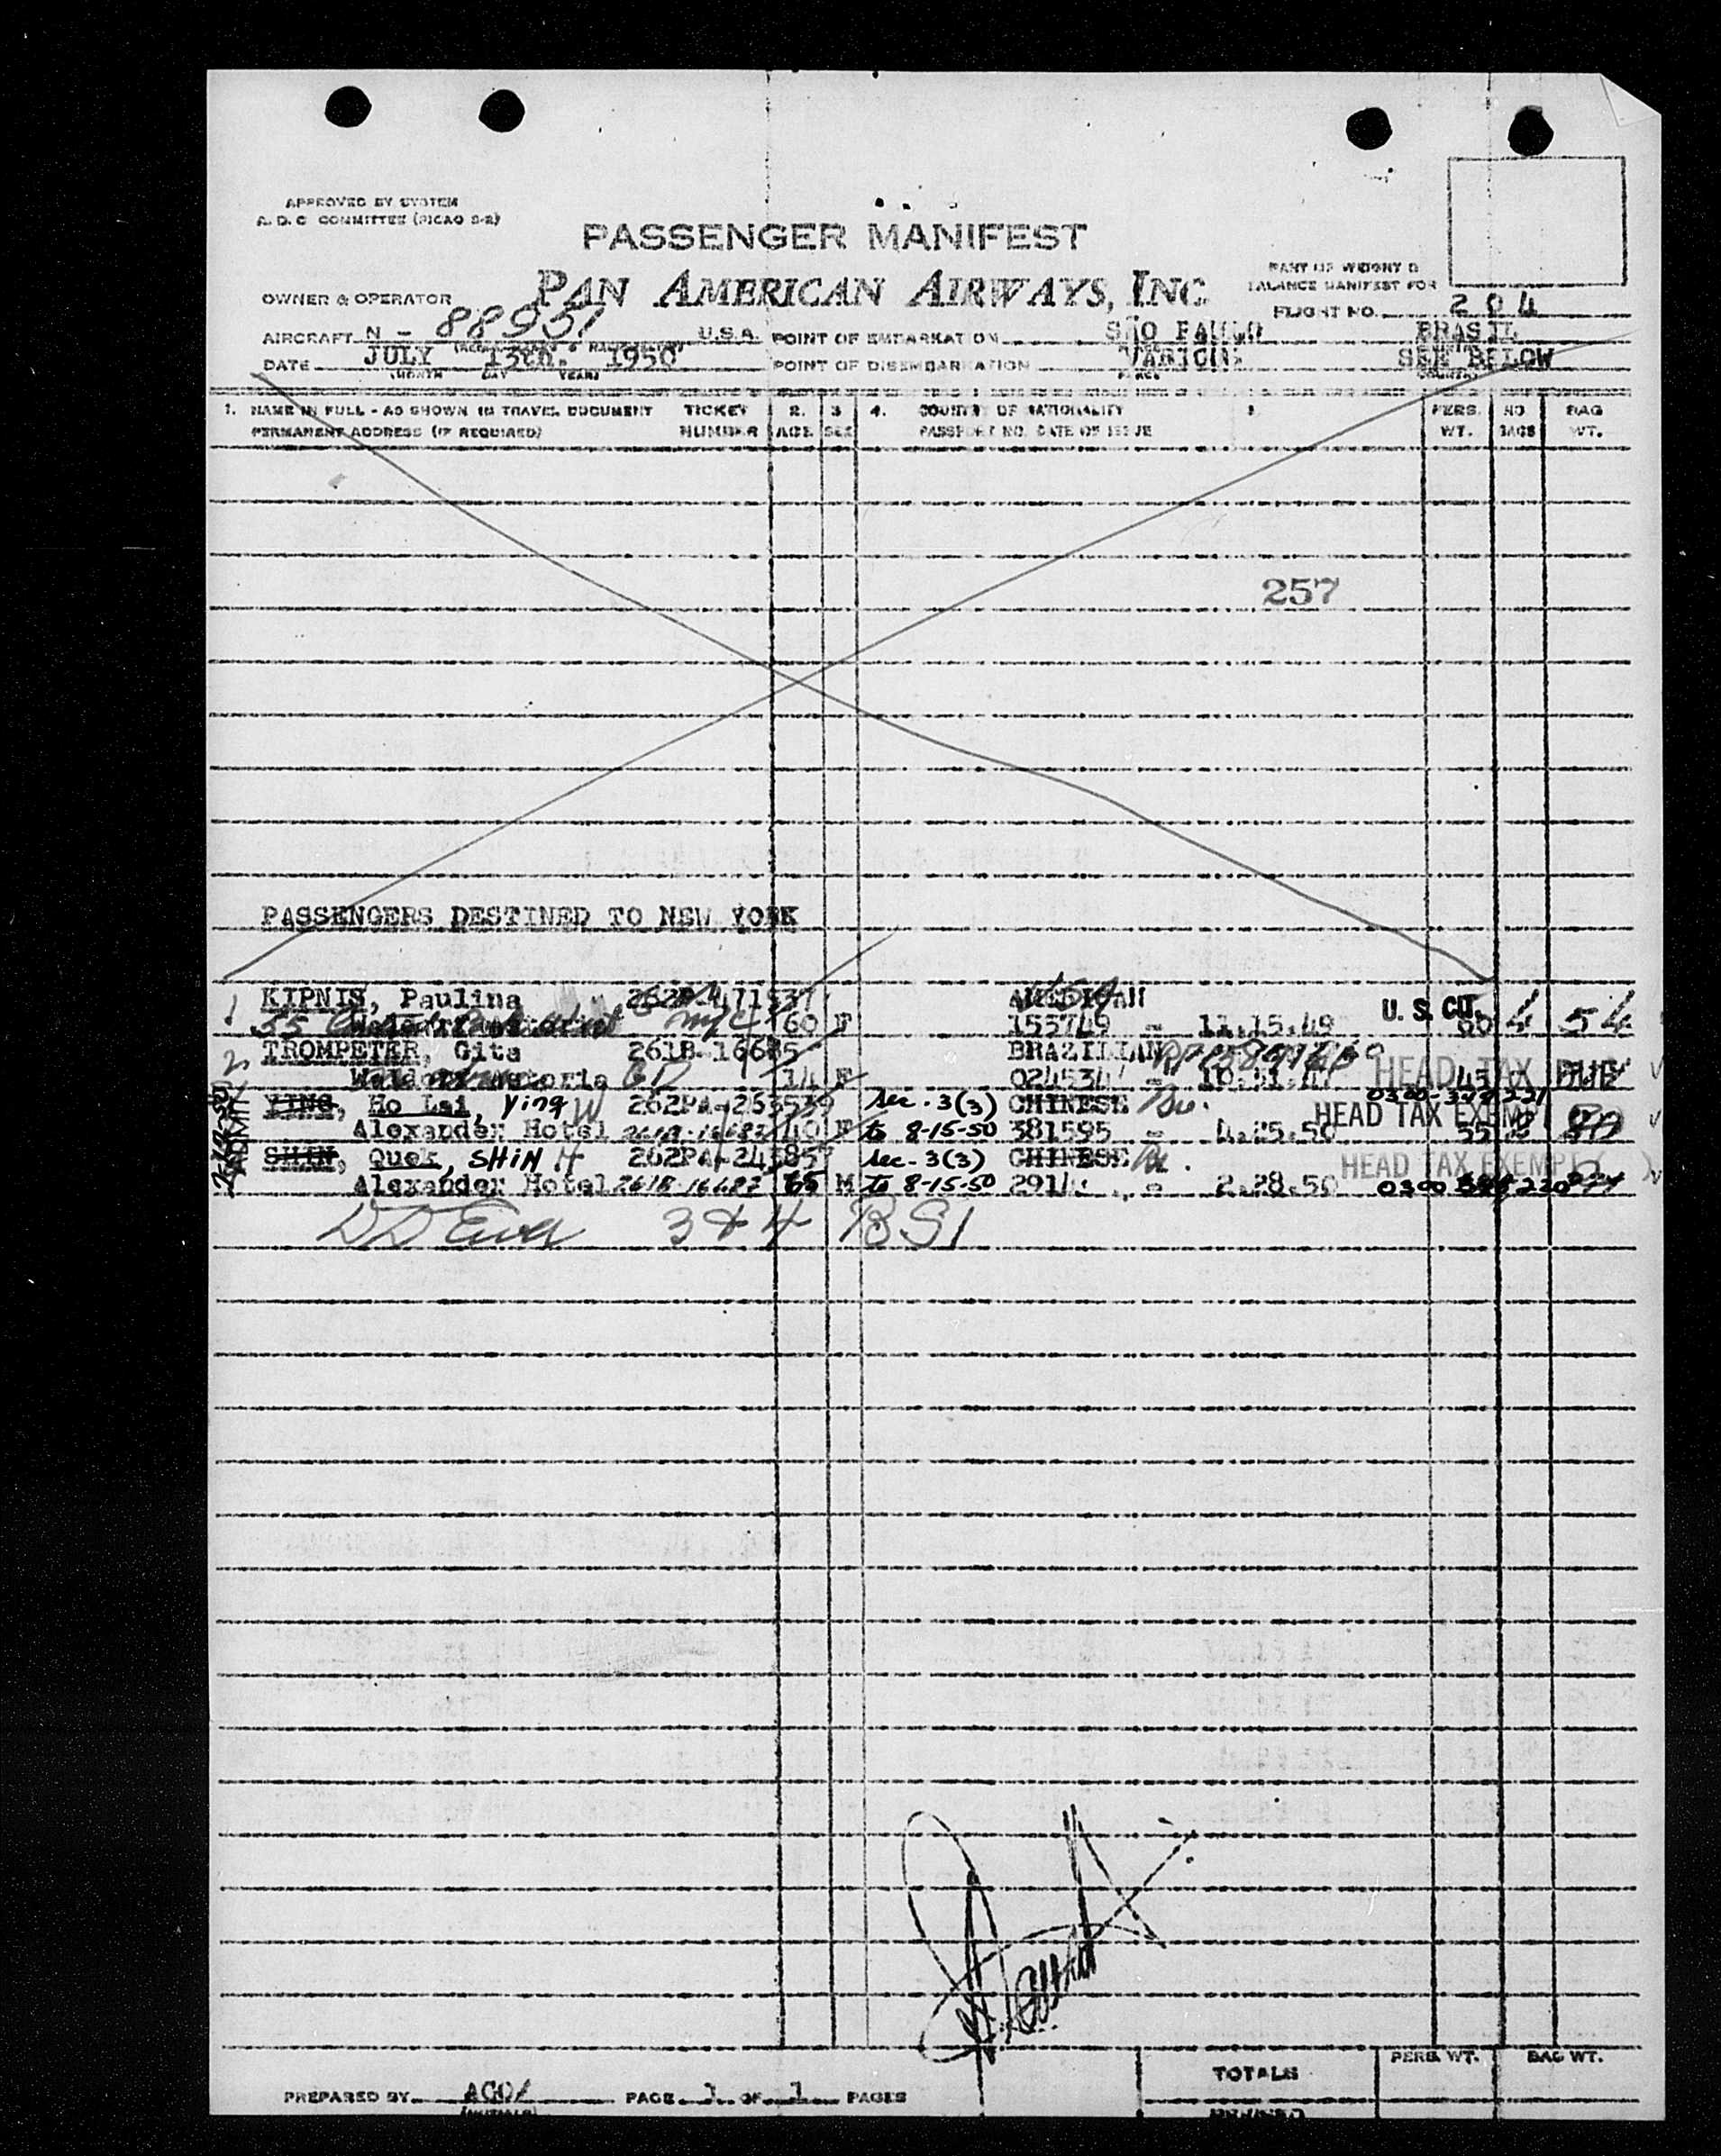 APPROVED BY SYSTEM
A. D. C COMMITTEE (PICAO S-2)
PASSENGER MANIFEST
PAN AMERICAN AIRWAYS, INC
PART OF WEIGHT &
BALANCE MANIFEST FOR
FLIGHT NO. 204
OWNER & OPERATOR
AIRCRAFT N - 88951 U.S.A. POINT OF EMBARKATION SÃO PAULO BRASIL
DATE JULY 13th. 1950 POINT OF DISEMBARKATION VARIOUS SEE BELOW
(MONTH DAY YEAR) PLACE COUNTRY
1. NAME IN FULL - AS SHOWN IN TRAVEL DOCUMENT TICKET 2. 3 4. COUNTRY OF NATIONALITY PERS. NO. BAG
PERMANENT ADDRESS (IF REQUIRED) NUMBER AGE SEX PASSPORT NO. DATE OF ISSUE WT. BAGS WT.
257
PASSENGERS DESTINED TO NEW YORK
1 KIPNIS, Paulina 262PA-471937 AMERICAN U. S. CIT.
55 60 F 155749 - 11.15.49 60 4 54
2 TROMPETER, Gita 261B-16685 BRAZILIAN HEAD TAX DUE
Waldorf Astoria 14 F 024534 - 10.31.47 45
YING, Ho Lai, Ying W 262PA-253539 Sec. 3(3) CHINESE 0300-349221
Alexander Hotel 261B-16683 40 F to 8-15-50 381595 - 4.25.50 HEAD TAX EXEMPT 55
SHIN, Quek, SHIN H 262PA-245857 Sec. 3(3) CHINESE HEAD TAX EXEMPT ( )
Alexander Hotel 261B-16682 65 M to 8-15-50 2914 - 2.28.50 0300
ADMIT
3 & 4 BSI
PREPARED BY PAGE 1 OF 1 PAGES
(INITIALS)
TOTALS
PERS. WT. BAG WT.